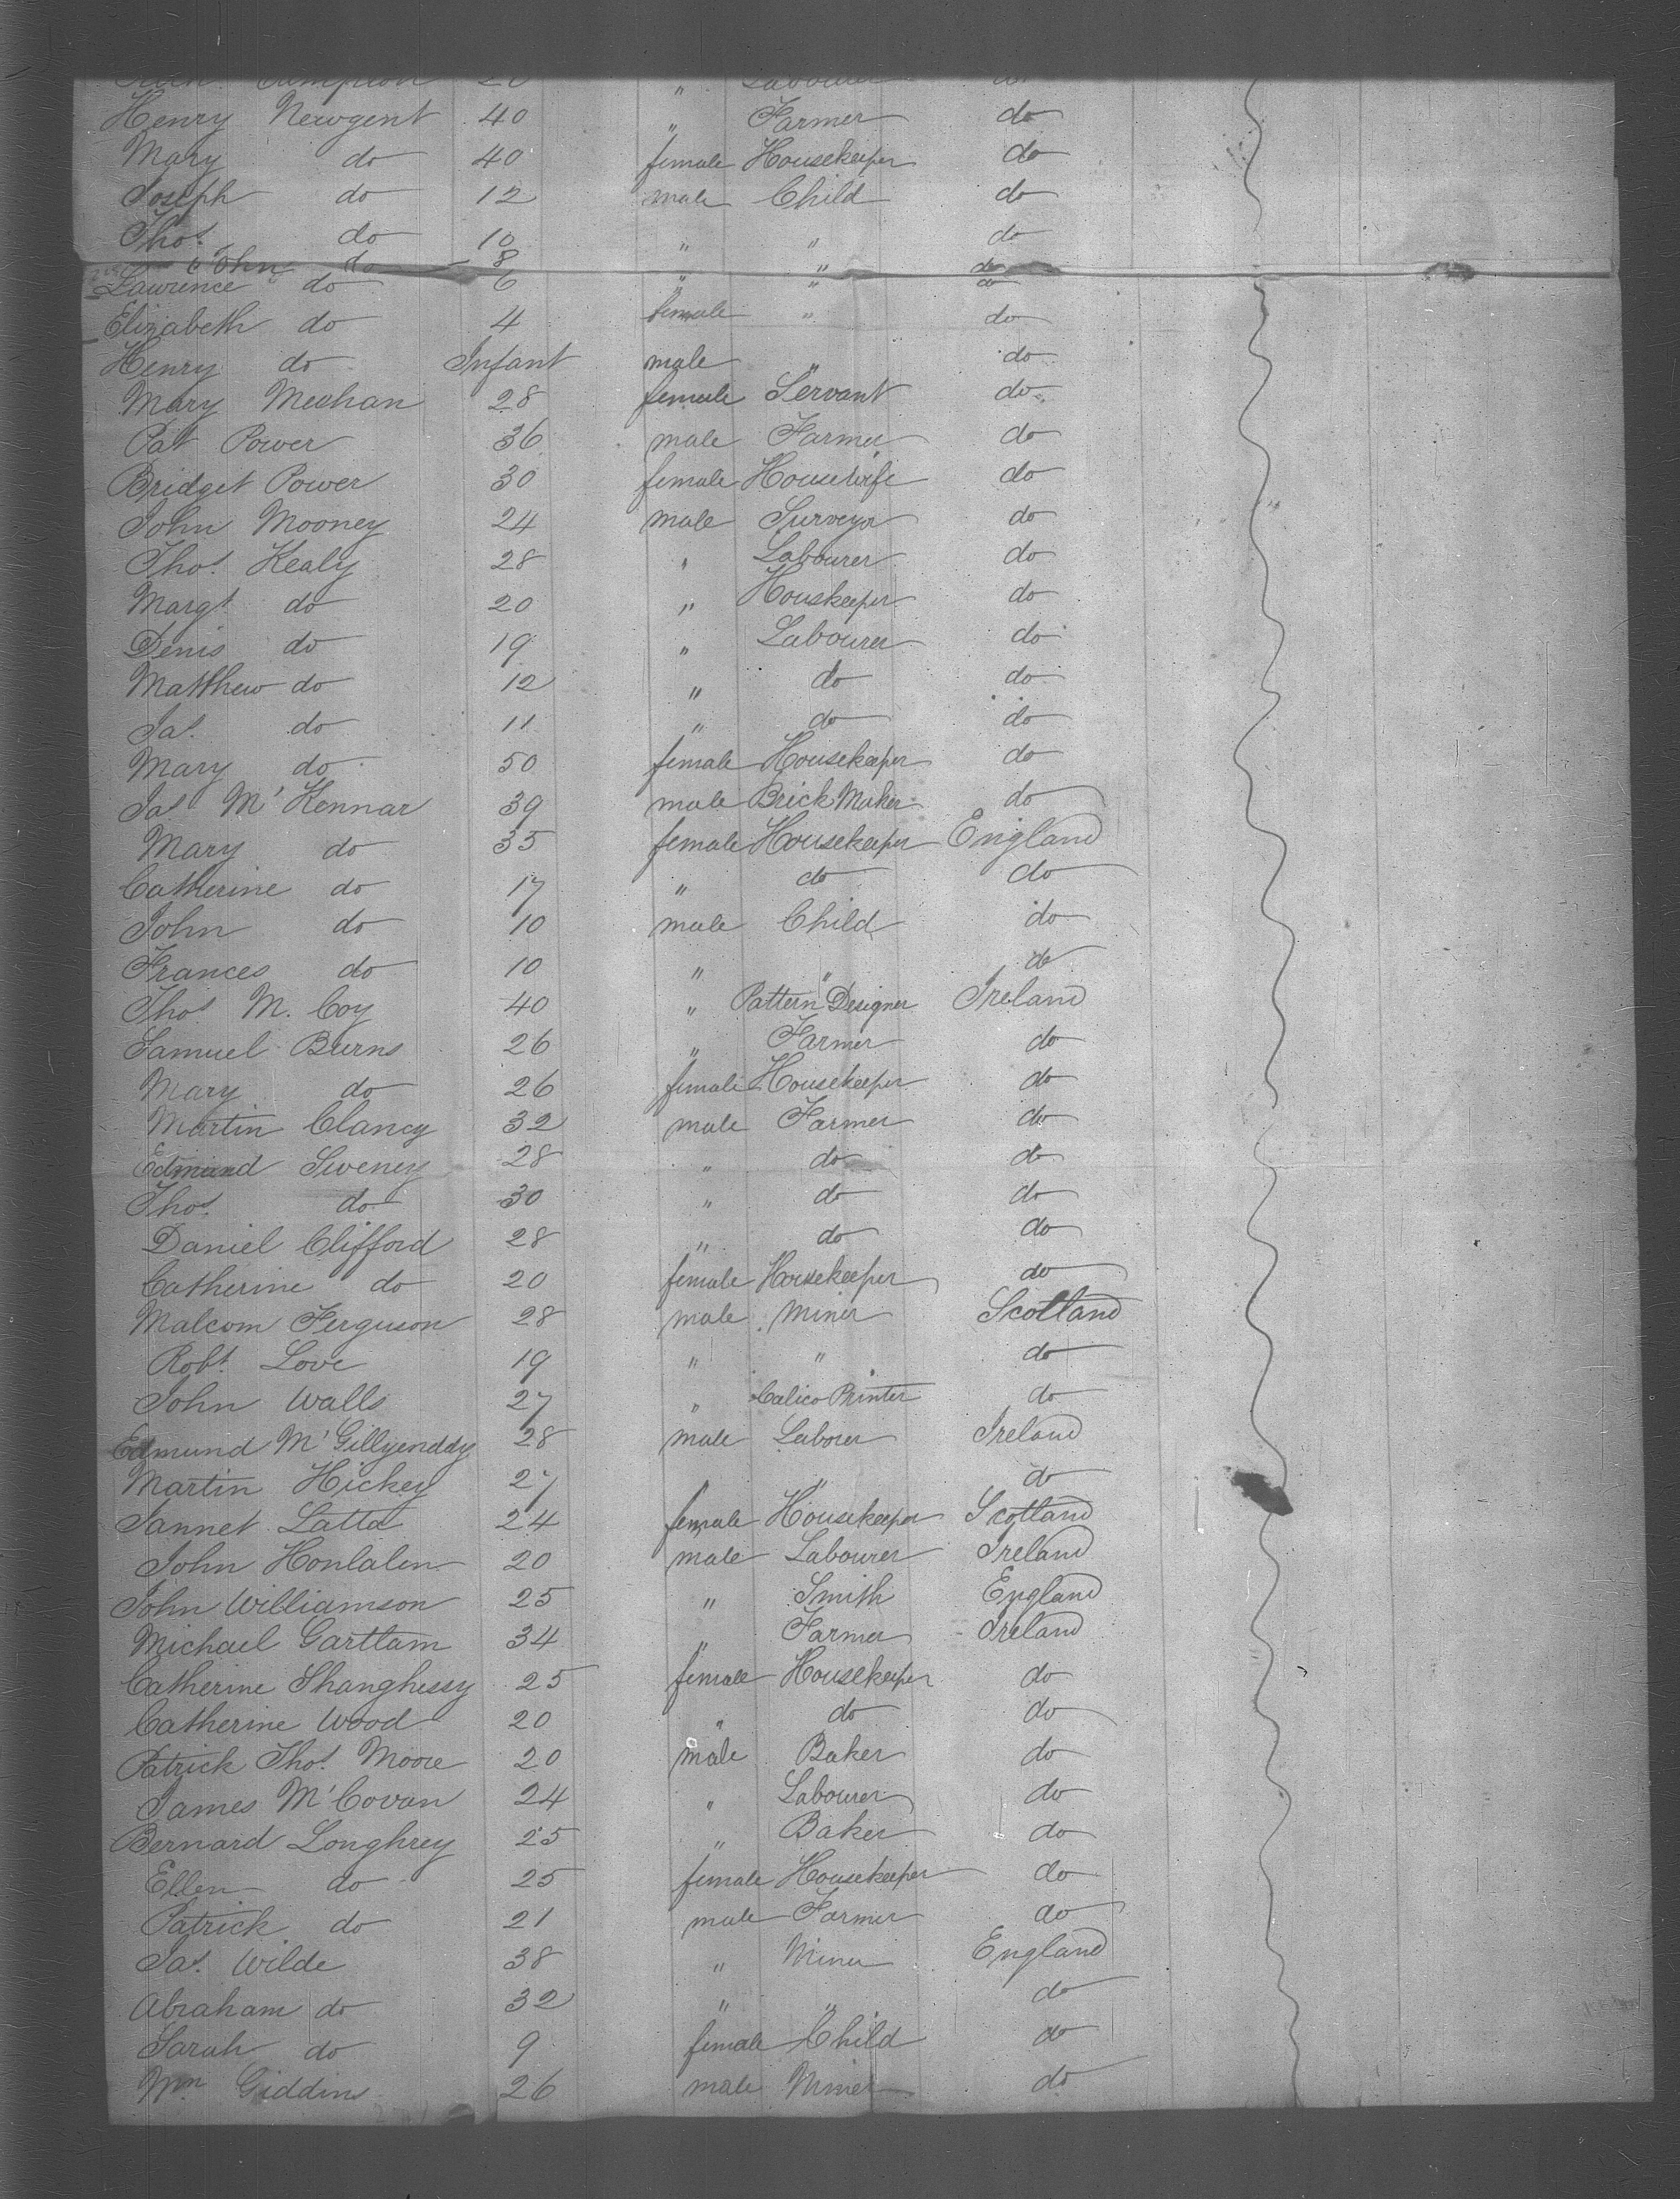 Henry Newgent 40 " Farmer do
Mary do 40 female Housekeeper do
Joseph do 12 male Child do
Thos. do 10 " " do
John do 8 " do
Lawrence do 6 " " do
Elizabeth do 4 female " do
Henry do Infant male " do
Mary Meehan 28 female Servant do
Pat Power 36 male Farmer do
Bridget Power 30 female Housewife do
John Mooney 24 male Surveyor do
Thos. Kealy 28 " Labourer do
Margt. do 20 " Houskeeper do
Denis do 19 " Labourer do
Matthew do 12 " do do
Jas. do 11 " do do
Mary do 50 female Housekeeper do
Jas. M'Kennar 39 male Brick Maker do
Mary do 35 female Housekeeper England
Catherine do 17 " do do
John do 10 male Child do
Frances do 10 " " do
Thos. M. Coy 40 " Pattern Designer Ireland
Samuel Burns 26 " Farmer do
Mary do 26 female Housekeeper do
Martin Clancy 32 male Farmer do
Edmund Sweney 28 " do do
Thos. do 30 " do do
Daniel Clifford 28 " do do
Catherine do 20 female Housekeeper do
Malcom Ferguson 28 male Miner Scotland
Robt. Love 19 " " do
John Walls 27 " Calico Printer do
Edmund M'Gillyenddy 28 male Laborer Ireland
Martin Hickey 27 " do
Jannet Latta 24 female Housekeeper Scotland
John Honlalen 20 male Labourer Ireland
John Williamson 25 " Smith England
Michael Gartlam 34 " Farmer Ireland
Catherine Shanghessy 25 female Housekeeper do
Catherine Wood 20 " do do
Patrick Thos. Moore 20 male Baker do
James M'Covan 24 " Labourer do
Bernard Longhrey 25 " Baker do
Ellen do 25 female Housekeeper do
Patrick do 21 male Farmer do
Jas. Wilde 38 " Miner England
Abraham do 32 " " do
Sarah do 9 female Child do
Wm Giddins 26 male Miner do